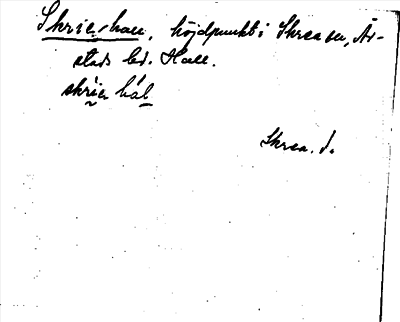 Skrie-hall, höjdpunkt i Skrea sn, År-
stads hd. Hall.
skrìe hál
Skrea. d.